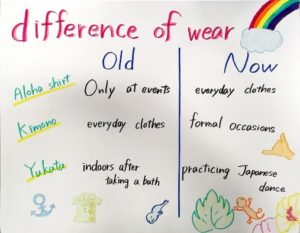 difference of wear
Old Now
Aloha shirt Only at events everyday clothes
Kimono everyday clothes formal occasions
Yukata indoors after practicing Japanese
taking a bath dance